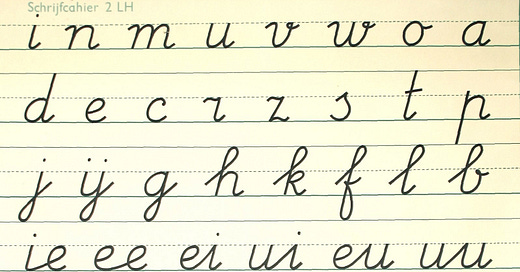 Schrijfcahier 2 LH
i n m u v w o a
d e c r z s t p
j ij g h k f l b
ie ee ei ui eu uu